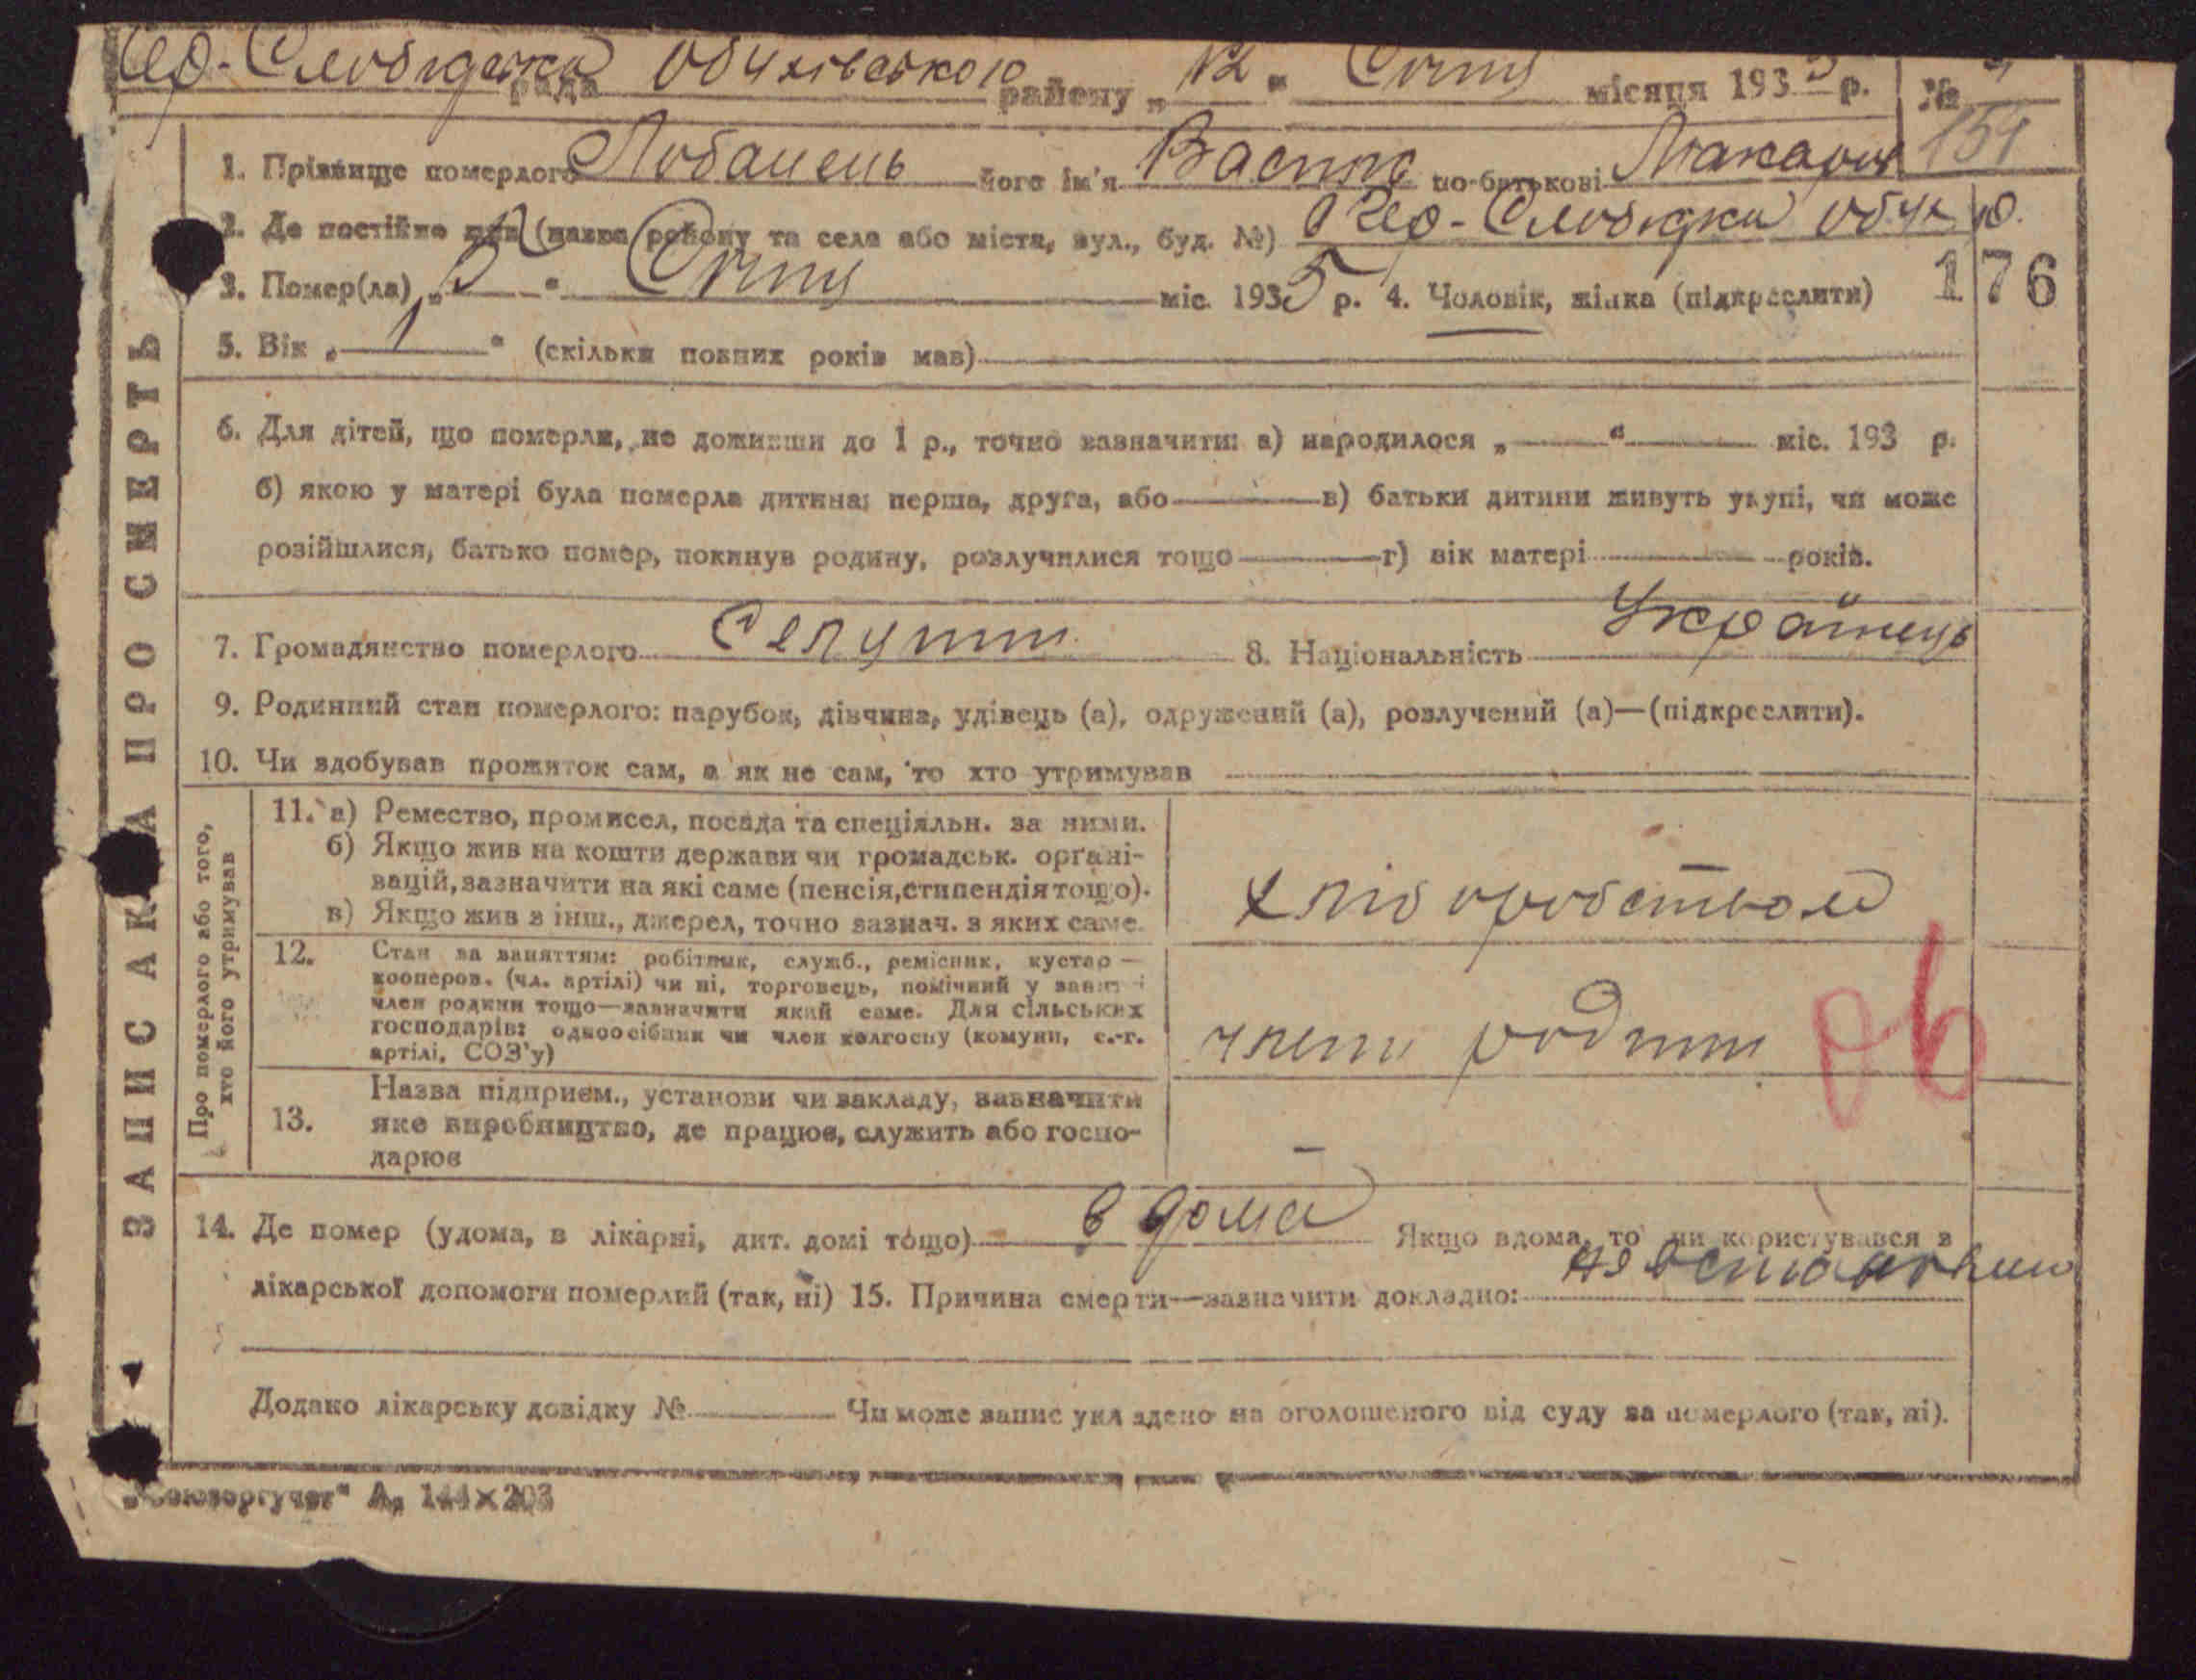 Чер-Слобідська рада Обухівського району „12“ Січня місяця 1935 р. №
154
1. Прізвище померлого Лобанець його ім'я Василь по-батькові Макаров
2. Де постійно жив (назва району та села або міста, вул., буд. №) Чер-Слобідки Обух р.
3. Помер(ла) „ “ Січня міс. 1935 р. 4. Чоловік, жінка (підкреслити) 176
5. Вік „1“ (скільки повних років мав)
6. Для дітей, що померли, не доживши до 1 р., точно зазначити: а) народилося „—“ міс. 193 р.
б) якою у матері була померла дитина: перша, друга, або — в) батьки дитини живуть укупі, чи може
розійшлися, батько помер, покинув родину, розлучилися тощо — г) вік матері років.
7. Громадянство померлого 8. Національність Українець
9. Родинний стан померлого: парубок, дівчина, удівець (а), одружений (а), розлучений (а)—(підкреслити).
10. Чи здобував прожиток сам, а як не сам, то хто утримував
ЗАПИСКА ПРО СМЕРТЬ
Про померлого або того, хто його утримував
11. а) Ремество, промисел, посада та спеціяльн. за ними.
б) Якщо жив на кошти держави чи громадськ. органі-
зацій, зазначити на які саме (пенсія, стипендія тощо).
в) Якщо жив з інш., джерел, точно зазнач. з яких саме.
хліборобством
12. Стан за заняттям: робітник, служб., ремісник, кустар —
кооперов. (чл. артілі) чи ні, торговець, помічний у занят
член родини тощо—зазначити який саме. Для сільських
господарів: одноосібник чи член колгоспу (комуни, с.-г.
артілі, СОЗ'у)
член родини
13. Назва підприєм., установи чи закладу, зазначити
яке виробництво, де працює, служить або госпо-
дарює
14. Де помер (удома, в лікарні, дит. домі тощо) в дома Якщо вдома, то чи користувався з
лікарської допомоги померлий (так, ні) 15. Причина смерти—зазначити докладно:
Додано лікарську довідку № — Чи може запис укладено на оголошеного від суду за померлого (так, ні).
„Союзоргучет“ А, 144×203